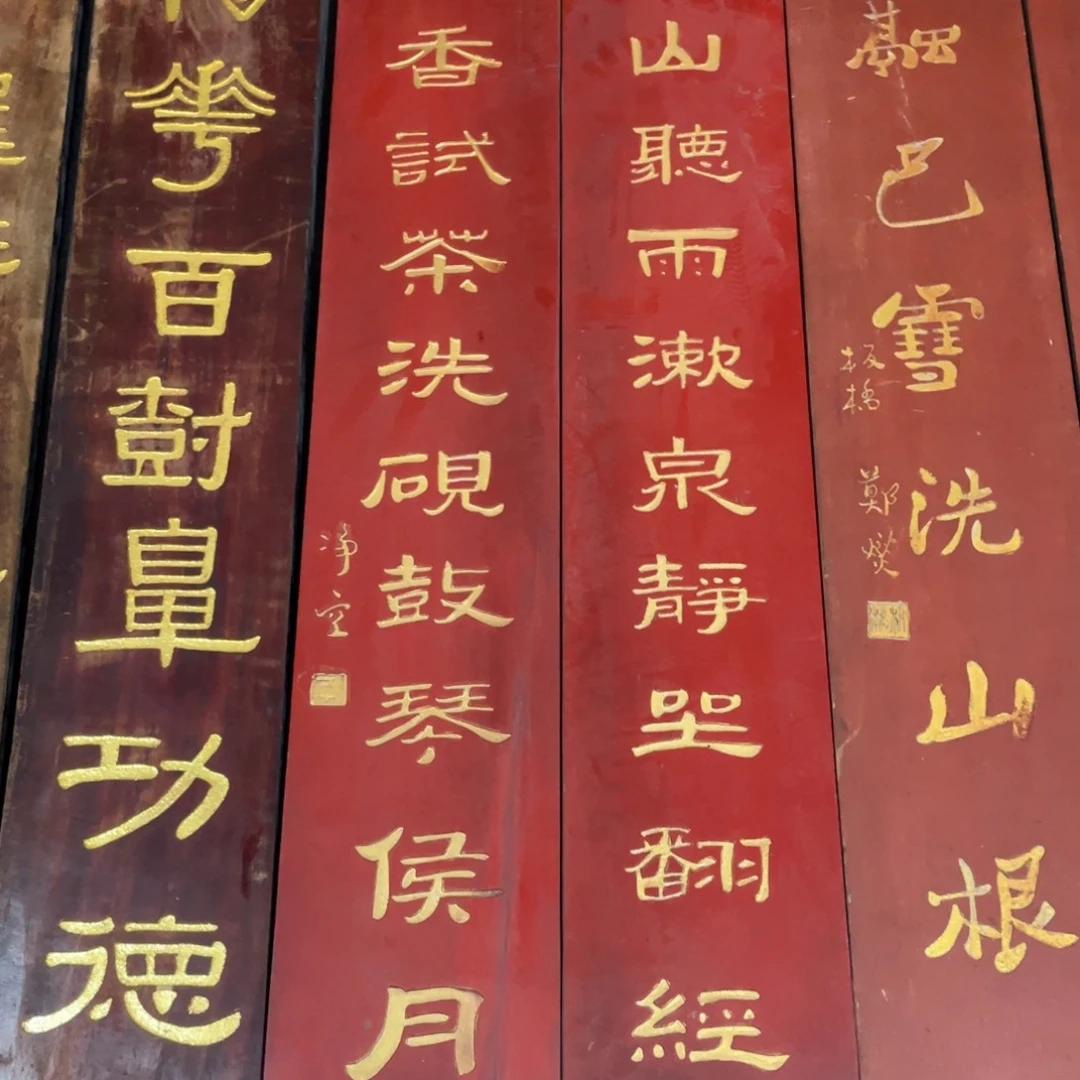 融巴雪洗山根
板橋 鄭燮
山聽雨漱泉靜坐翻經
香試茶洗硯鼓琴侯月
淨空
華百尌功德